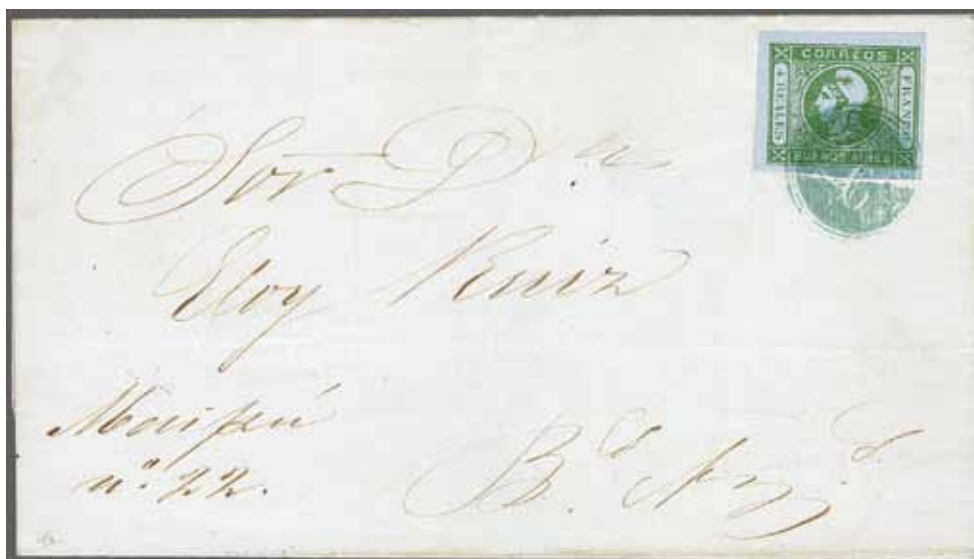 CORREOS
4 REALES
FRANCO
BUENOS AIRES
Sor D.n
Eloy Ruiz
Maipú
n.º 22.
B.s Ay.s